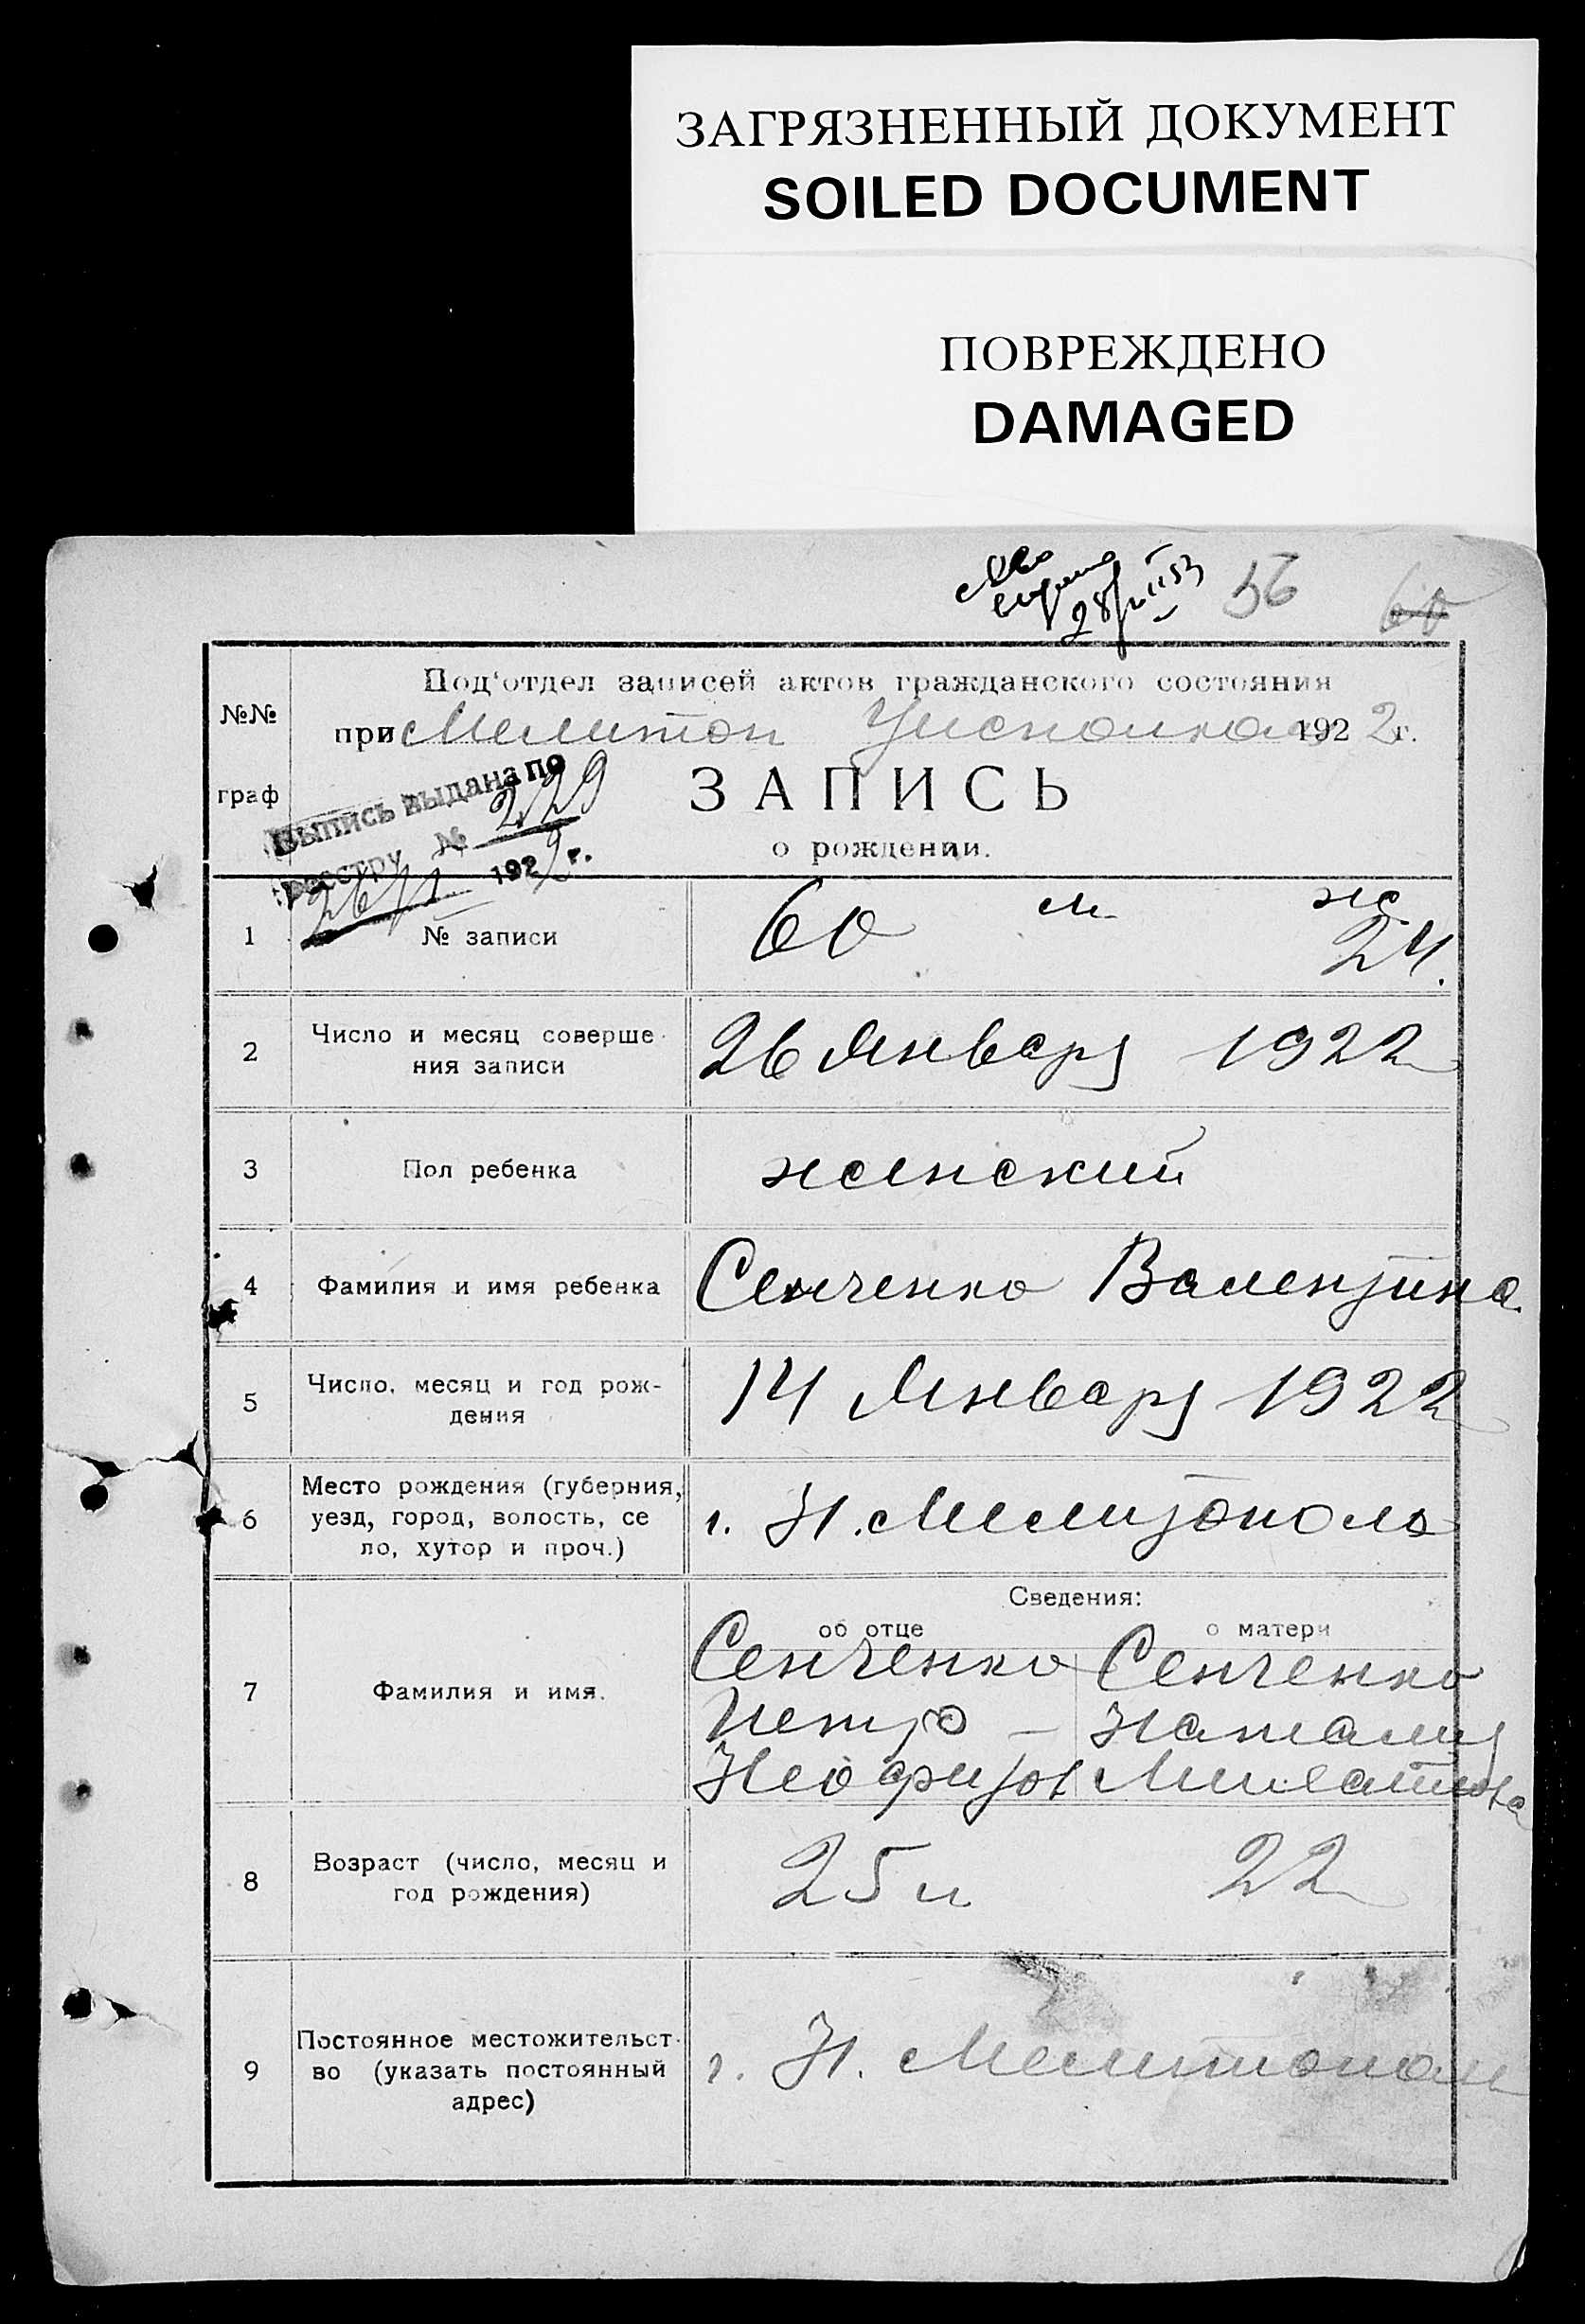 ЗАГРЯЗНЕННЫЙ ДОКУМЕНТ
SOILED DOCUMENT
ПОВРЕЖДЕНО
DAMAGED
28/ 53
56 60
№№
граф
Под'отдел записей актов гражданского состояния
при Мелитоп Уисполкома 1922 г.
Выпись выдана по
реестру № 229
26/I 1922 г.
ЗАПИСЬ
о рождении.
1 № записи 60 м ж 24.
2 Число и месяц соверше-
ния записи
26 Января 1922
3 Пол ребенка женский
4 Фамилия и имя ребенка Сенченко Валентина
5 Число, месяц и год рож-
дения
14 Января 1922
6 Место рождения (губерния,
уезд, город, волость, се
ло, хутор и проч.)
г. Н. Мелитополь
Сведения:
об отце о матери
7 Фамилия и имя.
Сенченко Сенченко
Петро - Наталия
Неофитов
8 Возраст (число, месяц и
год рождения)
25 и 22
9 Постоянное местожительст-
во (указать постоянный
адрес)
г. Н. Мелитополь